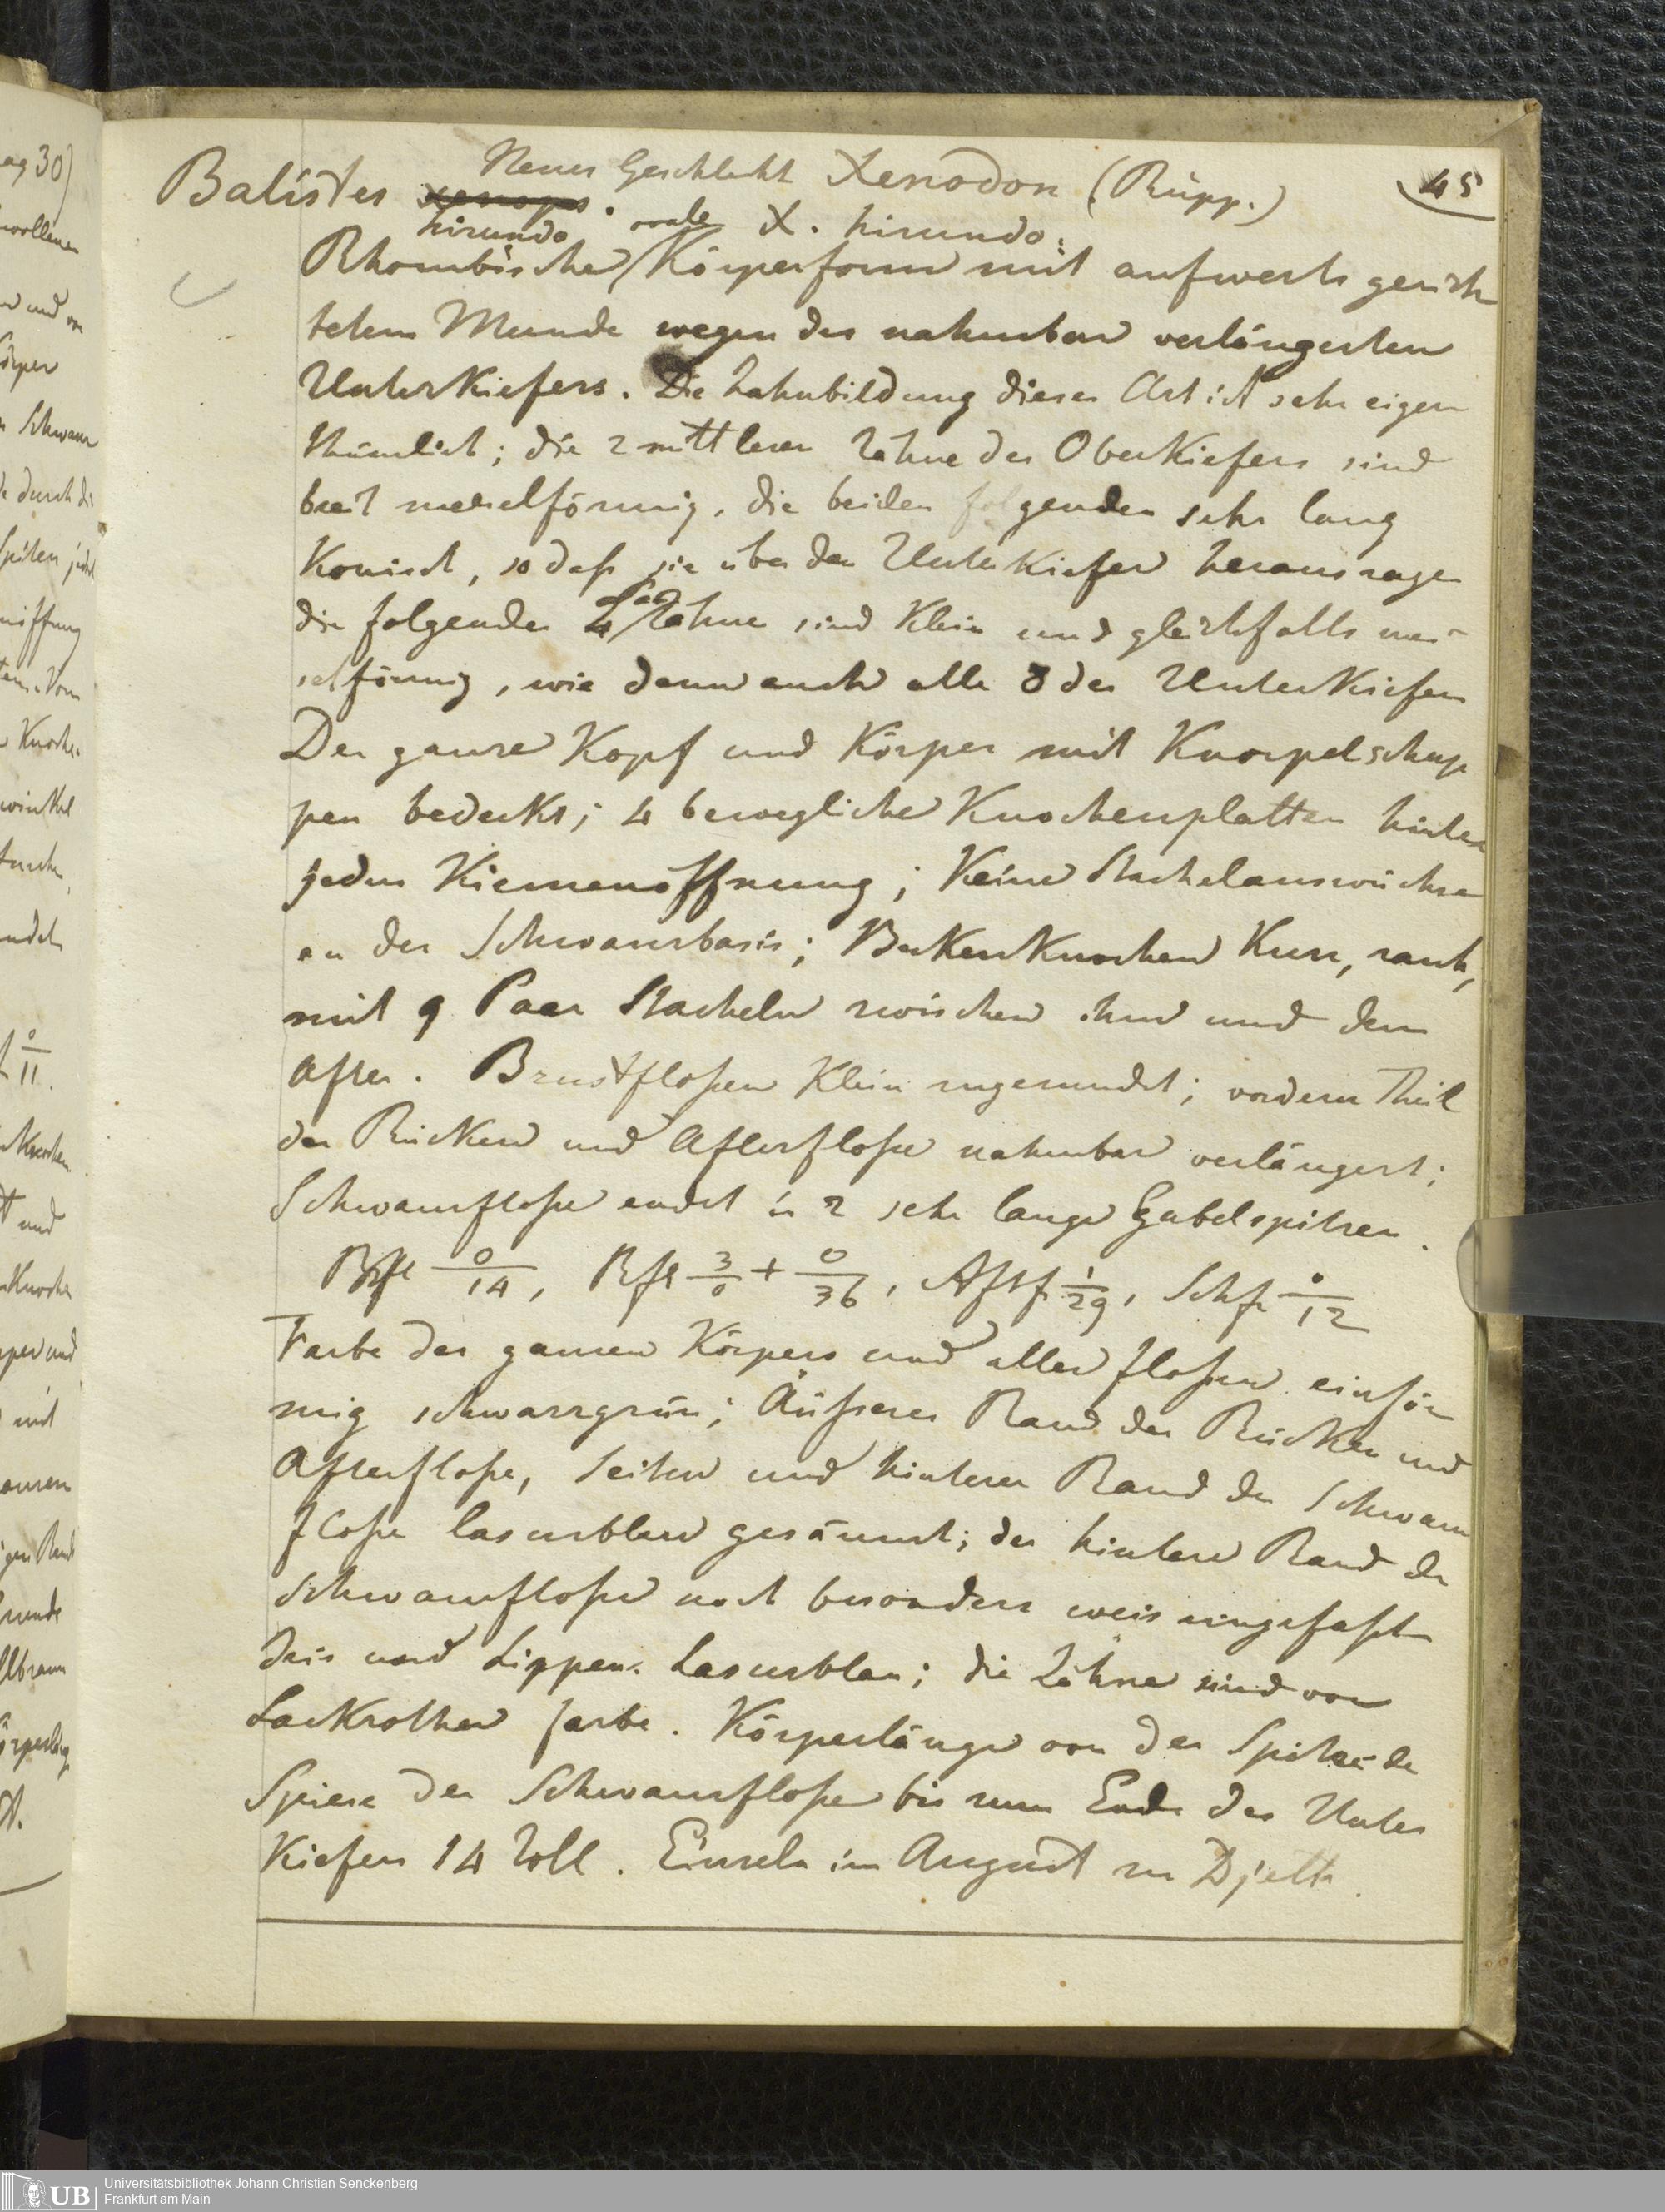 45
Neues Geschlecht Xenodon (Rüpp.)
Balistes xenops.
hirundo ovale X. hirundo.
Rhombische Körperform mit aufwerts gerich
tetem Munde wegen des nahmbar verlängerten
Unterkiefers. Die Zahnbildung dieser Art ist sehr eigen
thümlich; die 2 mittleren Zähne des Oberkiefers sind
breit meiselförmig, die beiden folgenden sehr lang
Konisch, so daß sie über den Unterkiefer herausragen
die folgenden 4 Zähne sind Klein und gleichfalls mei-
selförmig, wie dann auch alle 8 des Unterkiefers
Der ganze Kopf und Körper mit Knorpelschup
pen bedeckt; 4 bewegliche Knochenplatten hinter
jeder Kiemenöffnung; Keine Stachelauswüchse
an der Schwanzbasis; Beckenknochen Kurz, rauh,
mit 9 Paar Stacheln zwischen ihm und dem
After. Brustfloßen Klein zugerundet; vorderer Theil
der Rücken und Afterfloße nahmbar verlängert;
Schwanzfloße endet in 2 sehr lange Gabelspitzen.
Brfl 0/14, Rfl 3/0 + 0/36, Aftf 1/29, Schfl 0/12
Farbe des ganzen Körpers und aller floßen einför
mig schwarzgrün; Äußerer Rand der Rücken und
Afterfloße, Seiten und hinterer Rand der Schwanz
floße lasurblau gesäumt; der hintere Rand der
Schwanzfloße noch besonders weis eingefaßt
Iris und Lippen Lasurblau; die Zähne sind von
Lackrother farbe. Körperlänge von der Spitze der
Spiese der Schwanzfloße bis zum Ende des Unter
Kiefers 14 Zoll. Einzeln im August zu Djetta.
Universitätsbibliothek Johann Christian Senckenberg
Frankfurt am Main
UB